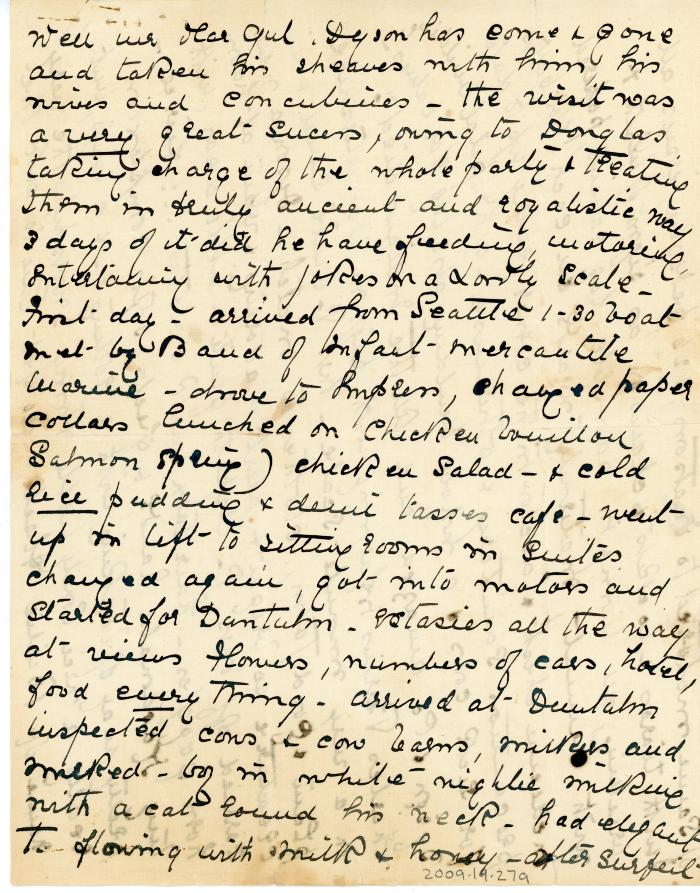 Well my dear Gul. Dyson has come & gone
and taken his sheaves with him, his
wives and concubines - the visit was
a very great success, owing to Douglas
taking charge of the whole party & treating
them in truly ancient and royalistic way
3 days of it did he have feeding, motoring,
entertaining with jokes on a Lordly scale -
First day - arrived from Seattle 1-30 boat
met by Band of Infant mercantile
Marine - drove to Empress, changed paper
collars lunched on chicken bouillon
Salmon Spring) chicken Salad - & cold
rice pudding & demi tasses cafe - went
up in lift to sitting rooms in suites
changed again, got into motors and
started for Duntulm - extasies all the way
at views flowers, numbers of cars, hotel,
food everything - arrived at Duntulm
inspected cows & cow barns, milkers and
milked - boy in white nightie milking
with a cat round his neck - had elegant
T. flowing with milk & honey - after surfeit
2009-19-279